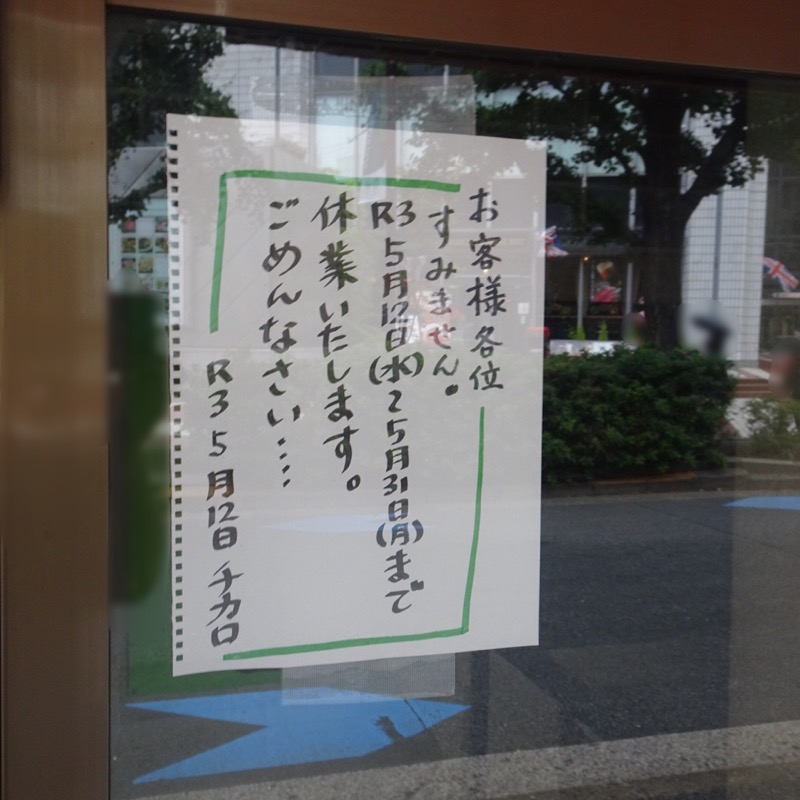 お客様各位
すみません。
R3 5月12日(水)〜5月31日(月)まで
休業いたします。
ごめんなさい‥‥
R3 5月12日 チカロ